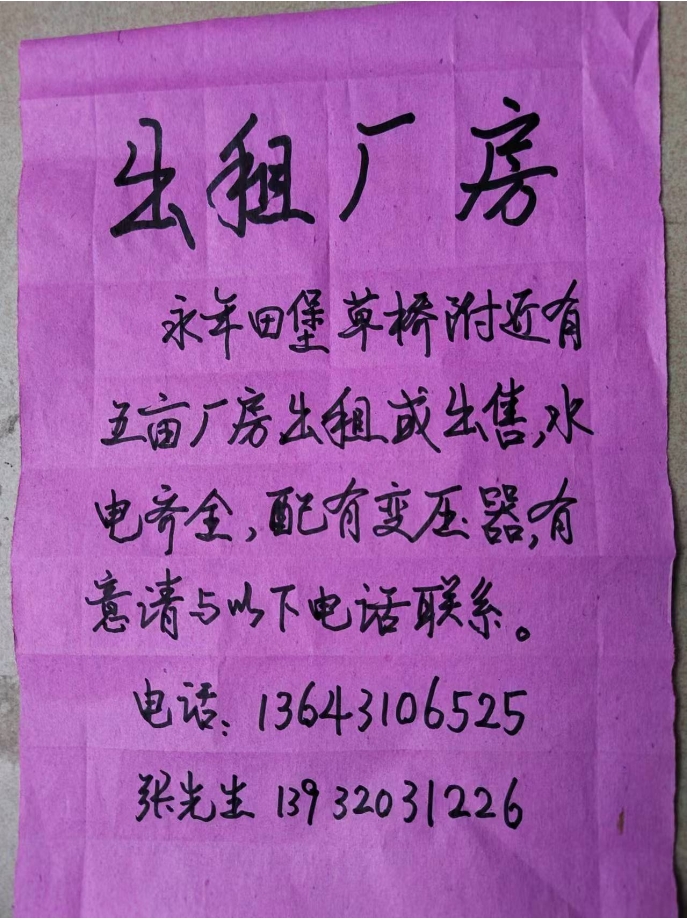 出租厂房
永年田堡草桥附近有
五亩厂房出租或出售,水
电齐全,配有变压器,有
意请与以下电话联系。
电话:13643106525
张先生 13932031226